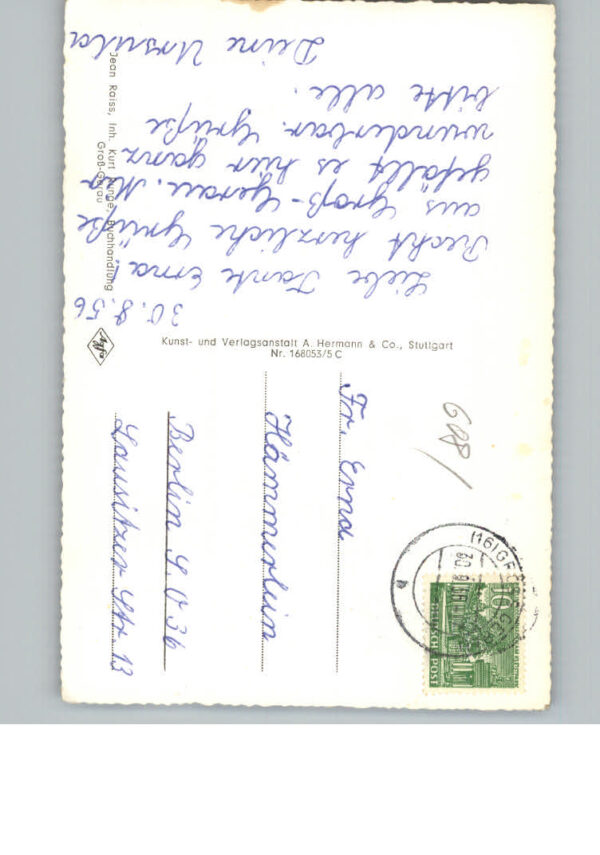 30.8.56
Liebe Tante Erna!
Recht herzliche Grüße
aus Groß-Gerau.
gefällt es hier ganz
wunderbar. Grüße
bitte alle.
Deine Ursula
Jean Raiss, Inh. Kurt Runge, Buchhandlung
Groß-Gerau
Kunst- und Verlagsanstalt A. Hermann & Co., Stuttgart
Nr. 168053/5 C
Agfa
Fr. Erna
Hämmerlein
Berlin S.O 36
Lausitzer Str. 13
(16) GROSS-GERAU
10
DEUTSCHE POST